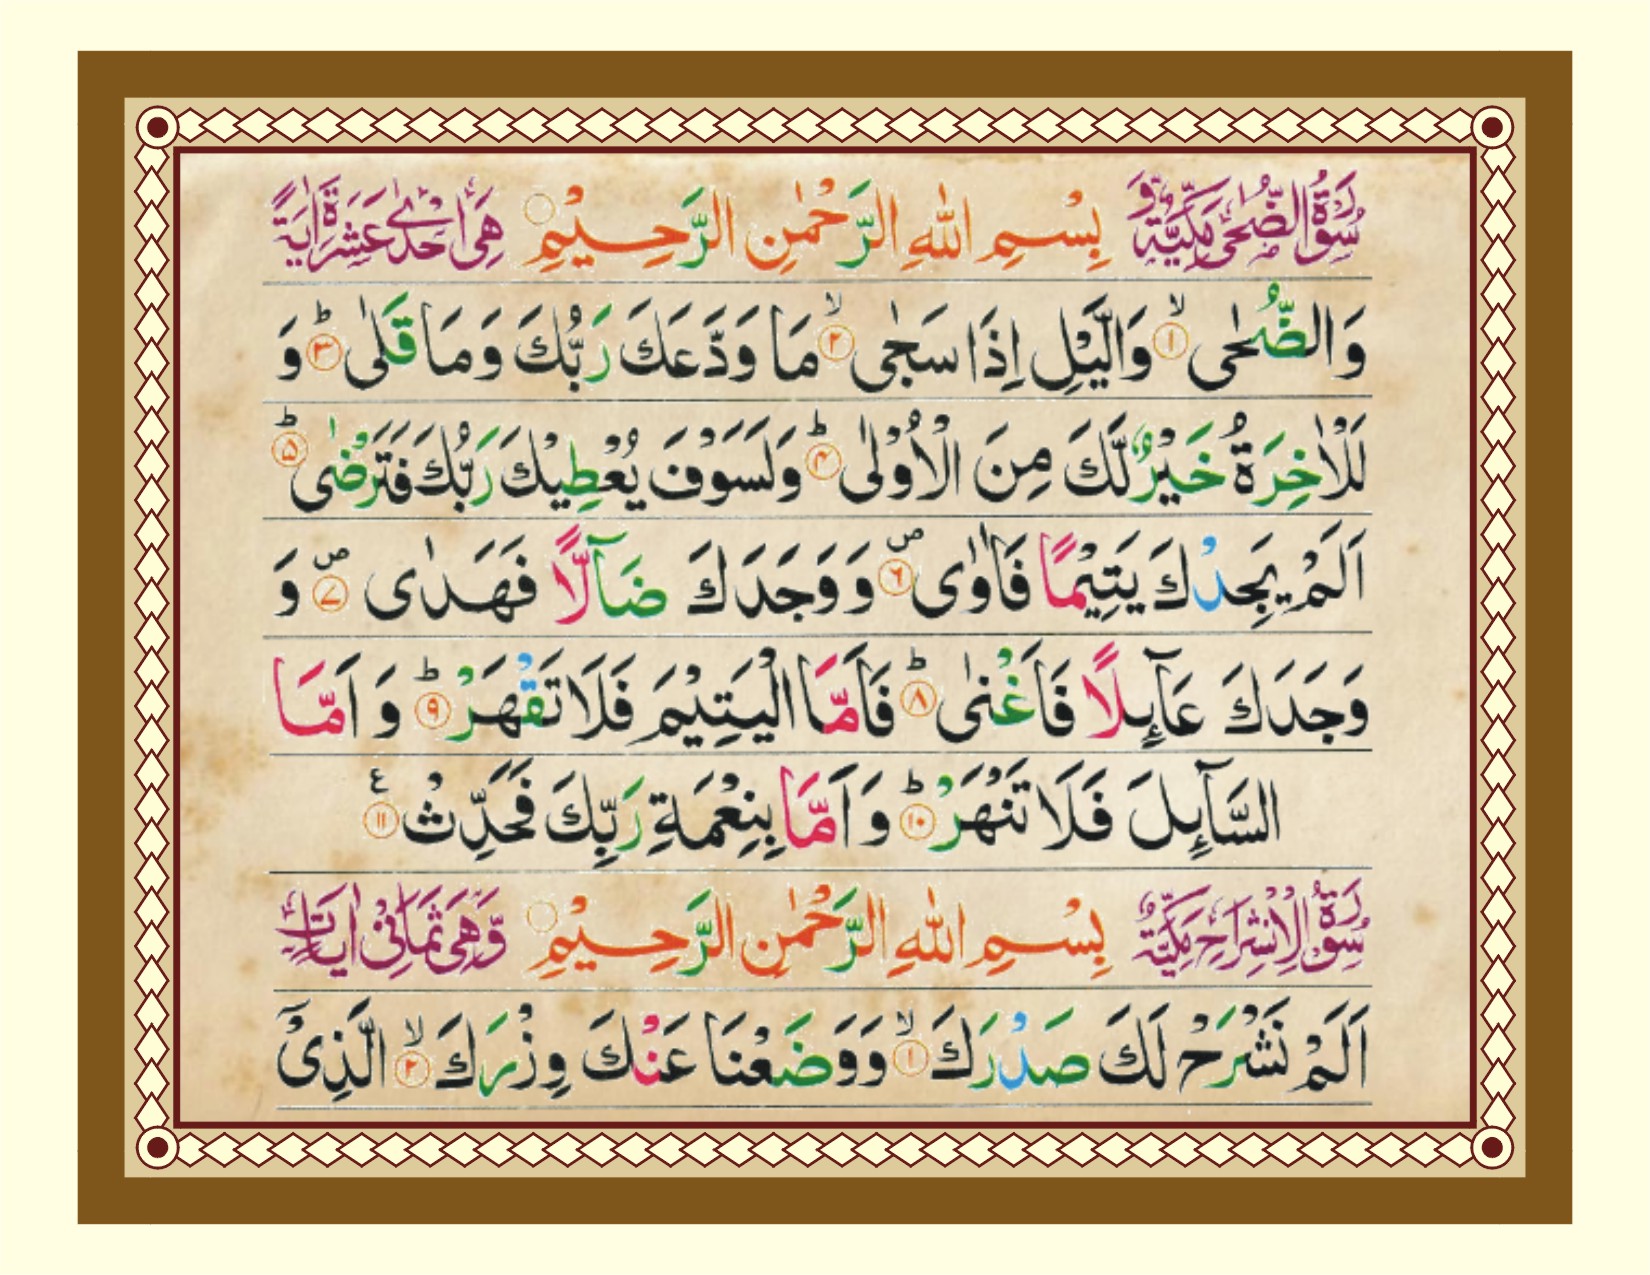 سُوْرَةُ الضُّحٰى مَكِّيَّةٌ وَّ بِسْمِ اللّٰهِ الرَّحْمٰنِ الرَّحِيْمِ ۝ هِىَ اِحْدٰى عَشْرَةَ اٰيَةً
وَالضُّحٰى ۙ﴿۱﴾ وَالَّيْلِ اِذَا سَجٰى ۙ﴿۲﴾ مَا وَدَّعَكَ رَبُّكَ وَمَا قَلٰى ؕ﴿۳﴾ وَ
لَلْاٰخِرَةُ خَيْرٌ لَّكَ مِنَ الْاُوْلٰى ؕ﴿۴﴾ وَلَسَوْفَ يُعْطِيْكَ رَبُّكَ فَتَرْضٰى ؕ﴿۵﴾
اَلَمْ يَجِدْكَ يَتِيْمًا فَاٰوٰى ۪﴿۶﴾ وَ وَجَدَكَ ضَآلًّا فَهَدٰى ۪﴿۷﴾ وَ
وَجَدَكَ عَآئِلًا فَاَغْنٰى ؕ﴿۸﴾ فَاَمَّا الْيَتِيْمَ فَلَا تَقْهَرْ ؕ﴿۹﴾ وَ اَمَّا
السَّآئِلَ فَلَا تَنْهَرْ ؕ﴿۱۰﴾ وَ اَمَّا بِنِعْمَةِ رَبِّكَ فَحَدِّثْ ﴿۱۱﴾ ع
سُوْرَةُ الْاِنْشِرَاحِ مَكِّيَّةٌ بِسْمِ اللّٰهِ الرَّحْمٰنِ الرَّحِيْمِ ۝ وَّهِىَ ثَمَانِىْ اٰيَاتٍ
اَلَمْ نَشْرَحْ لَكَ صَدْرَكَ ۙ﴿۱﴾ وَوَضَعْنَا عَنْكَ وِزْرَكَ ۙ﴿۲﴾ الَّذِىْۤ